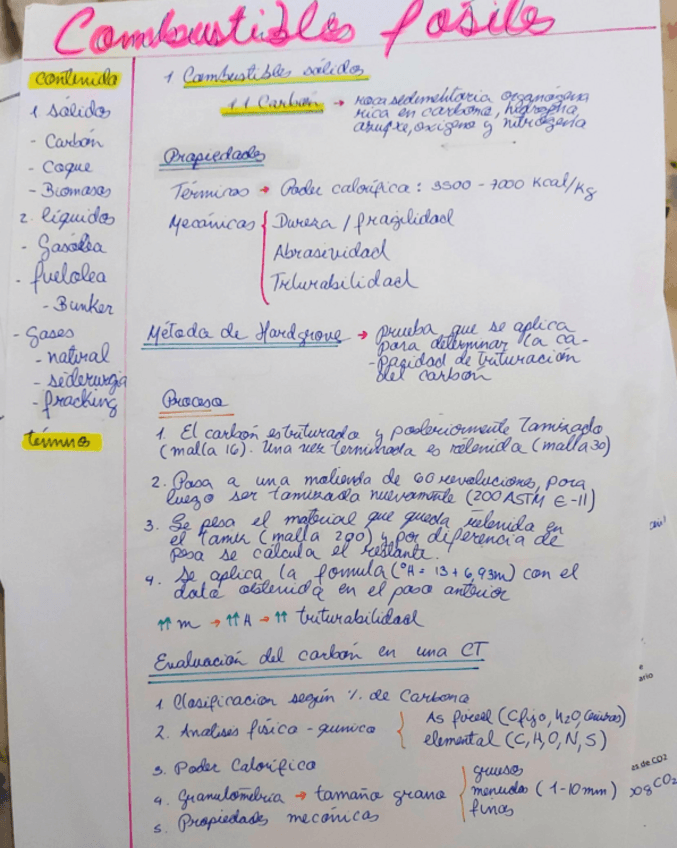 Combustibles fosiles
contenido
1 sólidos
- Carbón
- Coque
- Biomasas
2. líquidos
- Gasólea
- fuelolea
- Bunker
- Gases
- natural
- siderurgia
- fracking
térmnos
1 Combustibles sólidos
1.1 Carbón → roca sedimentaria organógena
rica en carbono, hidrogeno
azufre, oxígeno y nitrógeno
Propiedades
Términos → Poder calorífico: 3500 - 7000 Kcal/Kg
Mecánicas { Dureza / fragilidad
Abrasividad
Triturabilidad
Método de Hardgrove → prueba que se aplica
para determinar la ca-
-pacidad de trituración
del carbón
Proceso
1. El carbón es triturado y posteriormente Tamizado
(malla 16). Una vez terminado es retenido (malla 30)
2. Pasa a una molienda de 60 revoluciones, para
luego ser tamizado nuevamente (200 ASTM E-11)
3. Se pesa el material que queda retenido en
el tamiz (malla 200) y por diferencia de
peso se calcula el restante.
4. Se aplica la formula (°H = 13 + 6,93m) con el
dato obtenido en el paso anterior
↑↑ m → ↑↑ H → ↑↑ triturabilidad
Evaluación del carbón en una CT
1. Clasificacion según % de Carbono
2. Analisis físico - quimico { As (Cfijo, H2O, Cenizas)
elemental (C, H, O, N, S)
3. Poder Calorífico
4. Granulometría → tamaño grano { gruesos
menudos (1-10mm)
finos
5. Propiedades mecánicas
e
ario
as de CO2
CO2